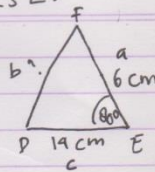 F
b?.
a
6 cm
80°
D 14 cm E
c